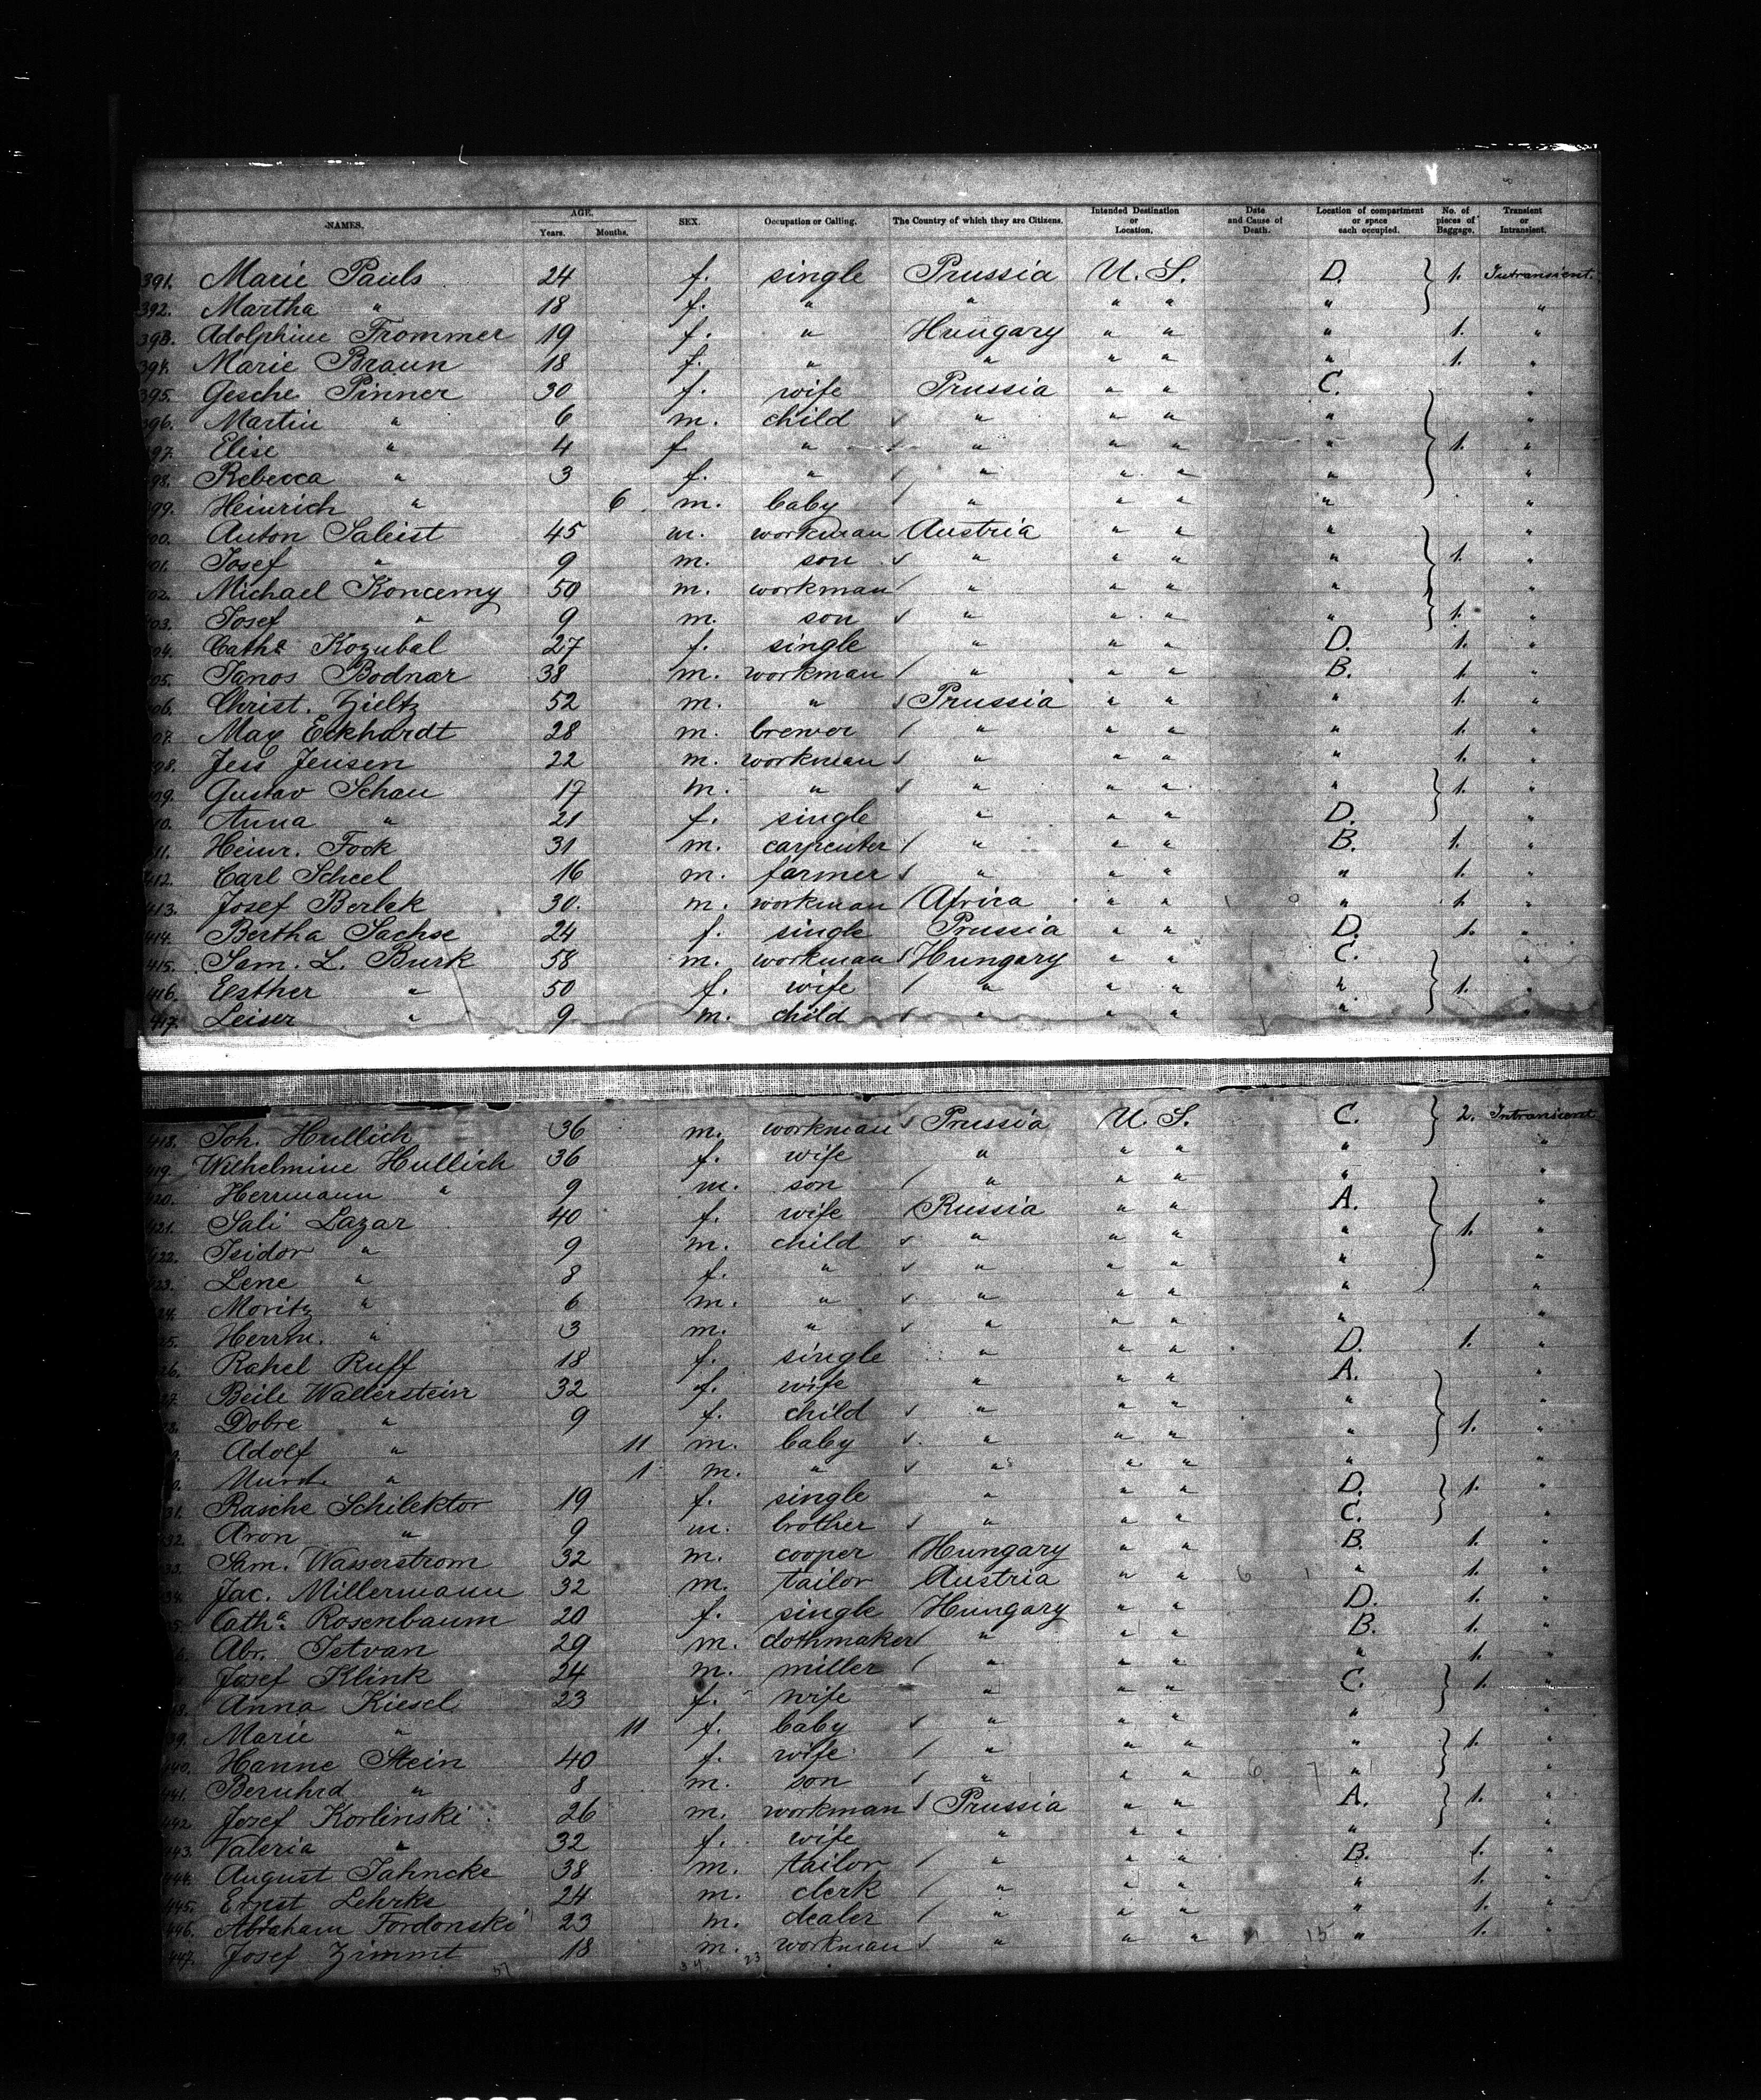 NAMES. AGE. Years. Months. SEX. Occupation or Calling. The Country of which they are Citizens. Intended Destination or Location. Date and Cause of Death. Location of compartment or space each occupied. No. of pieces of Baggage. Transient or Intransient.
391. Marie Pauls 24 f. single Prussia U. S. D. 1. Intransient.
392. Martha " 18 f. " " " " " "
393. Adolphine Frommer 19 f. " Hungary " " " 1. "
394. Marie Braun 18 f. " " " " " 1. "
395. Gesche Pinner 30 f. wife Prussia " " C. "
396. Martin " 6 m. child " " " " "
397. Elise " 4 f " " " " " 1. "
398. Rebecca " 3 f. " " " " " "
399. Heinrich " 6 m. baby " " " " "
400. Anton Saleist 45 m. workman Austria " " " "
401. Josef " 9 m. son " " " " 1. "
402. Michael Koncemy 50 m. workman " " " " "
403. Josef " 9 m. son " " " " 1. "
404. Catha Kozubal 27 f. single " " " D. 1. "
405. Janos Bodnar 38 m. workman " " " B. 1. "
406. Christ. Zieltz 52 m. " Prussia " " " 1. "
407. Max Eckhardt 28 m. brewer " " " " 1. "
408. Jess Jensen 22 m. workman " " " " 1. "
409. Gustav Schau 17 m. " " " " " 1. "
410. Anna " 21 f. single " " " D. "
411. Heinr. Fock 31 m. carpenter " " " B. 1. "
412. Carl Scheel 16 m. farmer " " " " 1. "
413. Josef Berlek 30. m. workman Africa " " " 1. "
414. Bertha Sachse 24 f. single Prussia " " D. 1. "
415. Sam. L. Burk 58 m. workman Hungary " " C. "
416. Esther " 50 f. wife " " " " 1. "
417. Leiser " 9 m. child " " " " "
418. Joh. Hullich 36 m. workman Prussia U. S. C. 2. Intransient
419. Wilhelmine Hullich 36 f. wife " " " " "
420. Herrmann " 9 m. son " " " " "
421. Sali Lazar 40 f. wife Russia " " A. "
422. Isidor " 9 m. child " " " " 1. "
423. Lene " 8 f. " " " " " "
424. Moritz " 6 m. " " " " " "
425. Herrm. " 3 m. " " " " " "
426. Rahel Ruff 18 f. single " " " D. 1. "
427. Beile Wallerstein 32 f. wife " " " A. "
428. Dobre " 9 f. child " " " " "
429. Adolf " 11 m. baby " " " " 1. "
430. " 1 m. " " " " " "
431. Rasche Schilektor 19 f. single " " " D. 1. "
432. Aron " 9 m. brother " " " C. "
433. Sam. Wasserstrom 32 m. cooper Hungary " " B. 1. "
434. Jac. Millermann 32 m. tailor Austria " " " 1. "
435. Catha Rosenbaum 20 f. single Hungary " " D. 1. "
436. Abr. Istvan 29 m. clothmaker " " " B. 1. "
Josef Klink 24 m. miller " " " " 1. "
438. Anna Kiesel 23 f. wife " " " C. 1. "
439. Marie " 11 f. baby " " " " "
440. Hanne Stein 40 f. wife " " " " 1. "
441. Bernhrd " 8 m. son " " " " "
442. Josef Korlinski 26 m. workman Prussia " " A. 1. "
443. Valeria " 32 f. wife " " " " "
444. August Jahncke 38 m. tailor " " " B. 1. "
445. Ernst Lehrke 24 m. clerk " " " " 1. "
446. Abraham Fordonski 23 m. dealer " " " " 1. "
447. Josef Zimmt 18 m. workman " " " " 1. "